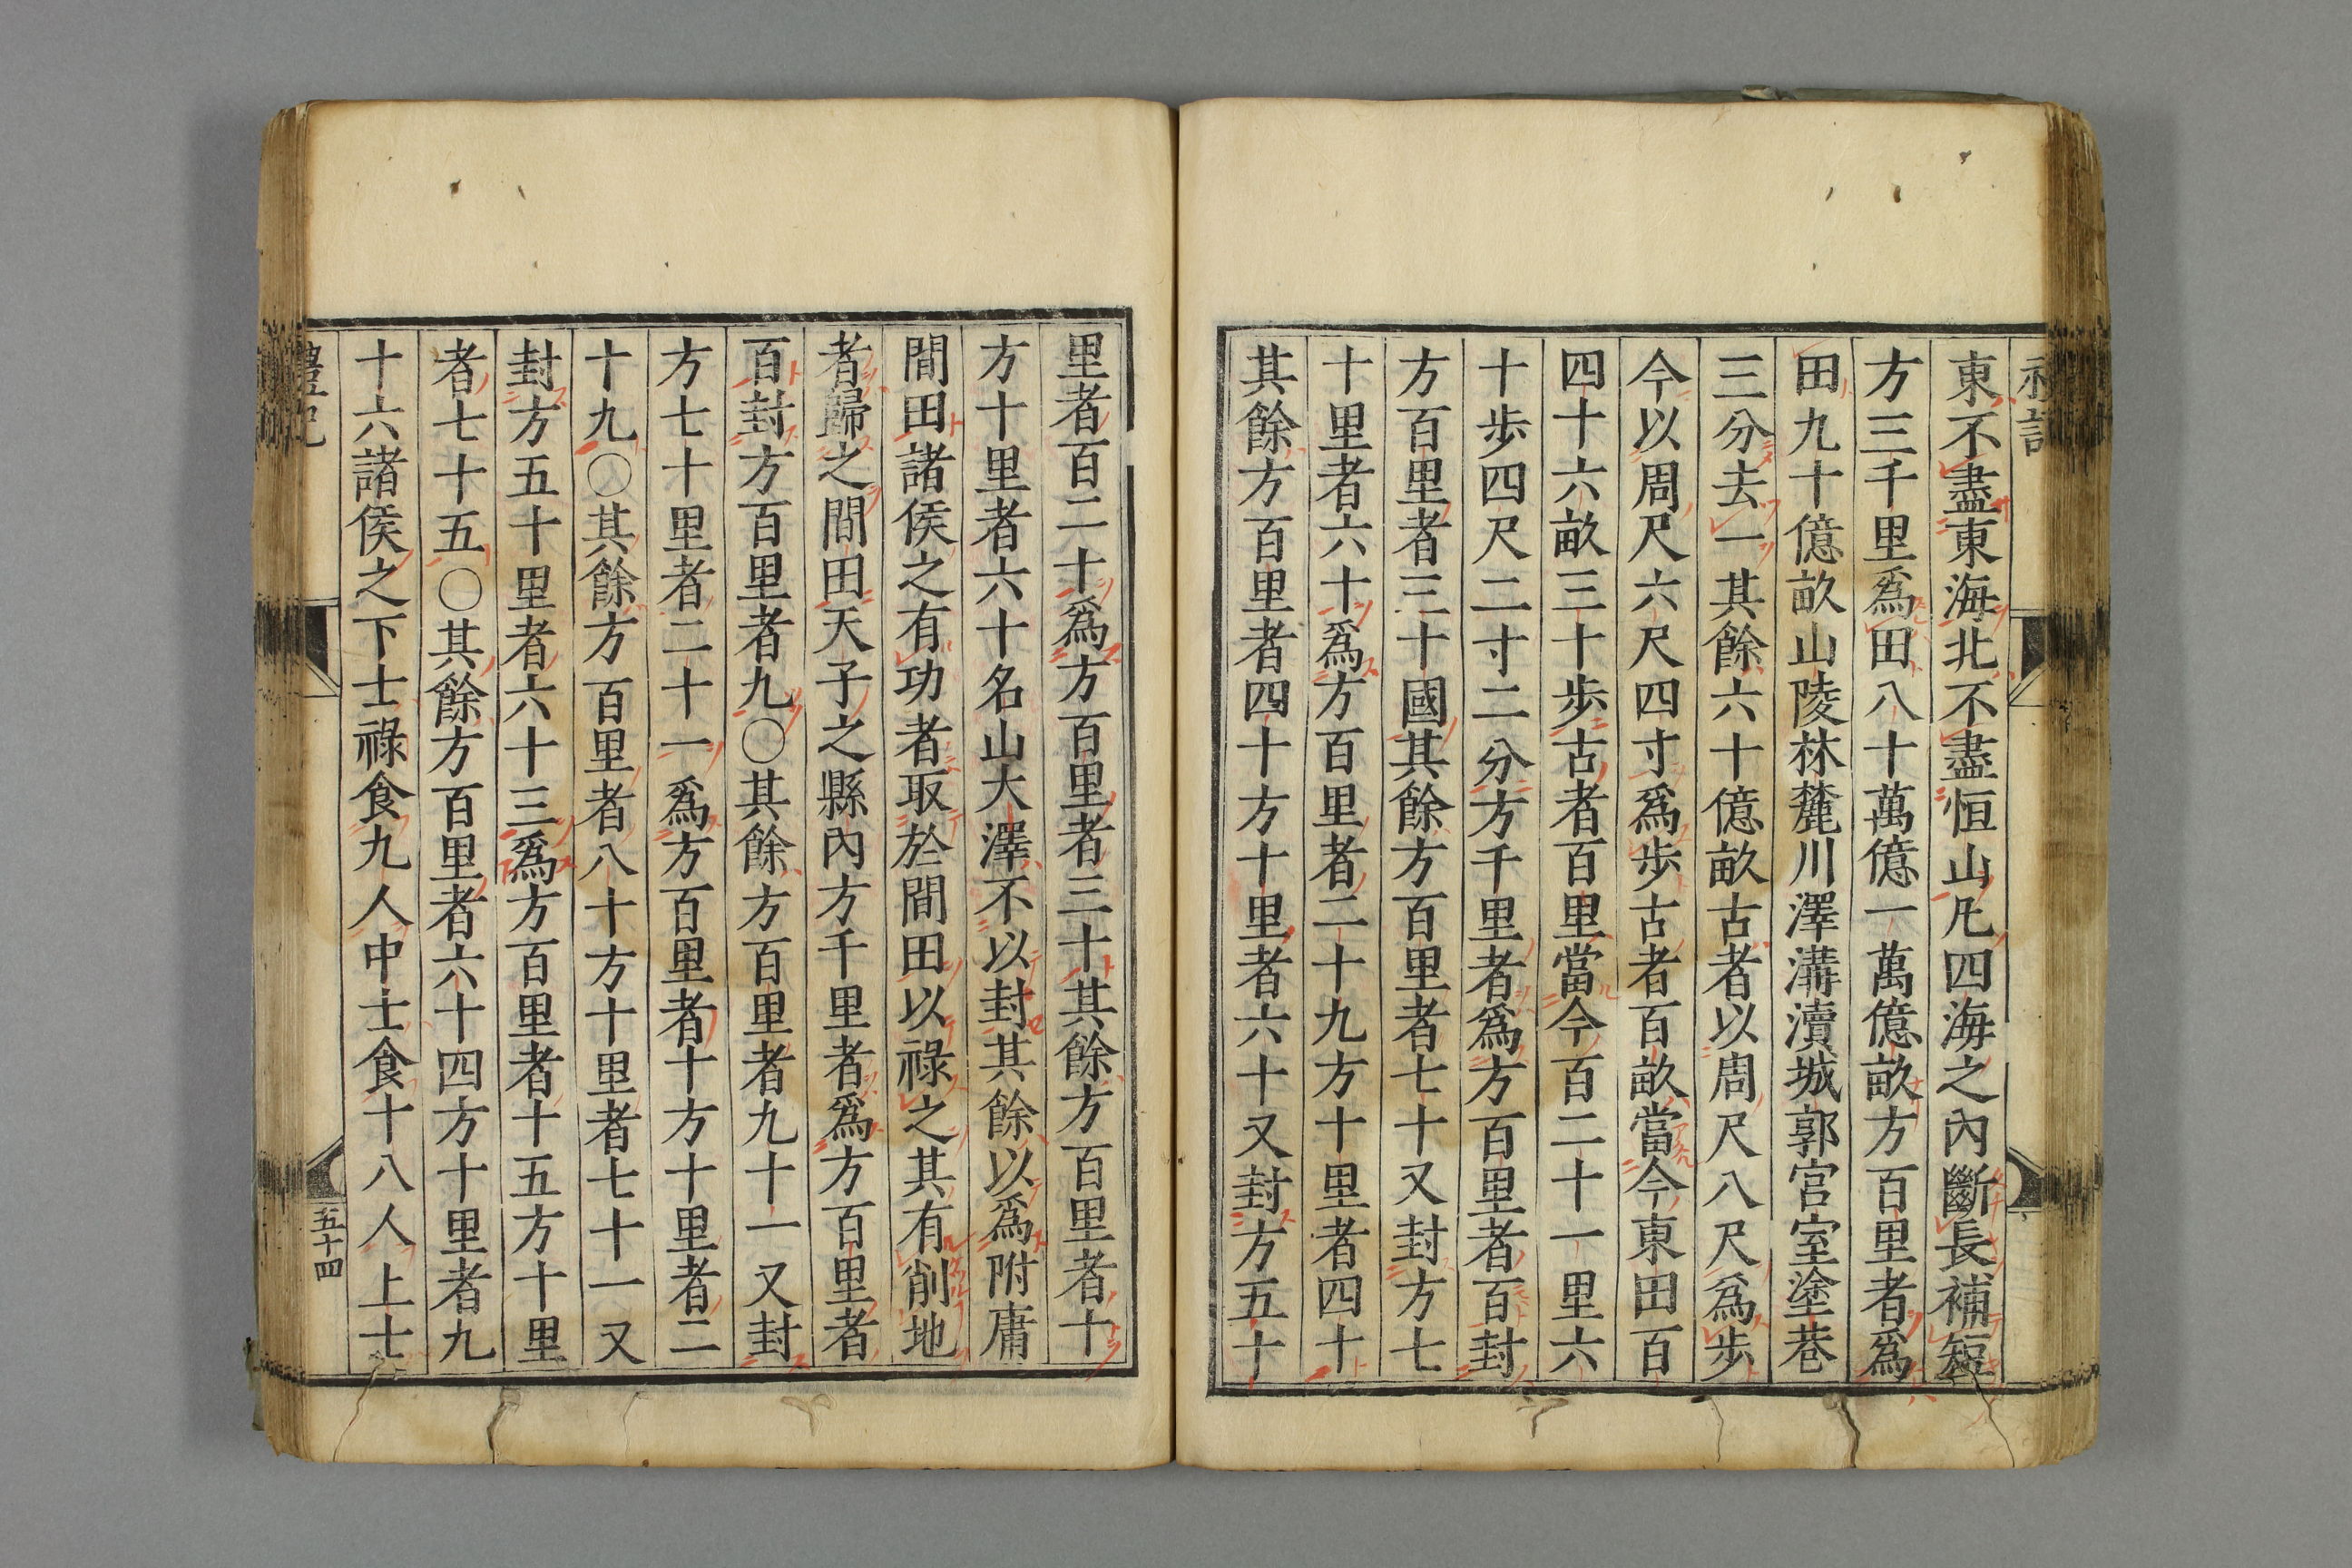 禮記
東不盡東海北不盡恒山凡四海之內斷長補短
方三千里爲田八十萬億一萬億畝方百里者爲
田九十億畝山陵林麓川澤溝瀆城郭宮室塗巷
三分去一其餘六十億畝古者以周尺八尺爲步
今以周尺六尺四寸爲步古者百畝當今東田百
四十六畝三十步古者百里當今百二十一里六
十步四尺二寸二分方千里者爲方百里者百封
方百里者三十國其餘方百里者七十又封方七
十里者六十爲方百里者二十九方十里者四十
其餘方百里者四十方十里者六十又封方五十
里者百二十爲方百里者三十其餘方百里者十
方十里者六十名山大澤不以封其餘以爲附庸
間田諸侯之有功者取於間田以祿之其有削地
者歸之間田天子之縣內方千里者爲方百里者
百封方百里者九〇其餘方百里者九十一又封
方七十里者二十一爲方百里者十方十里者二
十九〇其餘方百里者八十方十里者七十一又
封方五十里者六十三爲方百里者十五方十里
者七十五〇其餘方百里者六十四方十里者九
十六諸侯之下士祿食九人中士食十八人上士
禮記
五十四